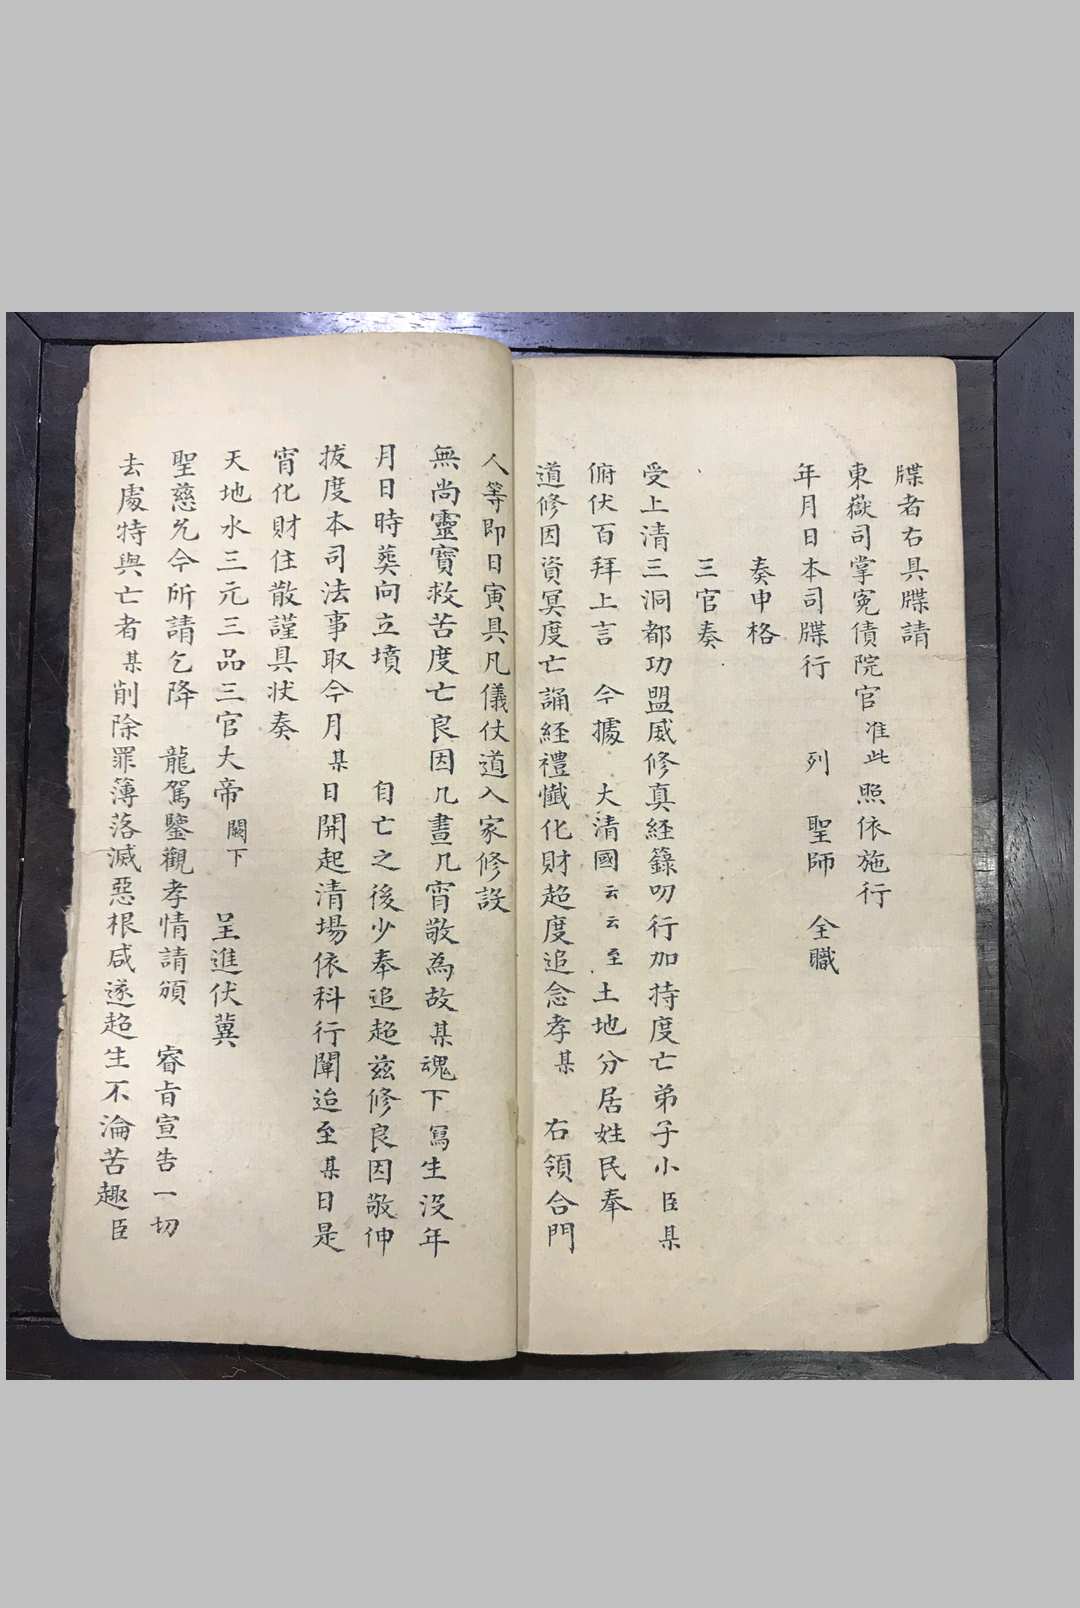 牒者右具牒請
東嶽司掌冤債院官准此照依施行
年月日本司牒行 列 聖師 全職
奏申格
三官奏
受上清三洞都功盟威修真経籙叨行加持度亡弟子小臣某
俯伏百拜上言 今據 大清國云云至土地分居姓民奉
道修因資冥度亡誦経禮懺化財超度追念孝某 右領合門
人等即日寅具凡儀仗道入家修設
無尚靈寶救苦度亡良因几晝几宵敬為故某魂下寫生沒年
月日時葬向立墳 自亡之後少奉追超茲修良因敬伸
拔度本司法事取今月某日開起清場依科行闡迨至某日是
宵化財住散謹具状奏
天地水三元三品三官大帝闕下 呈進伏冀
聖慈允今所請乞降 龍駕鑒觀孝情請頒 睿旨宣告一切
去處特與亡者某削除罪簿落滅惡根咸遂超生不淪苦趣臣